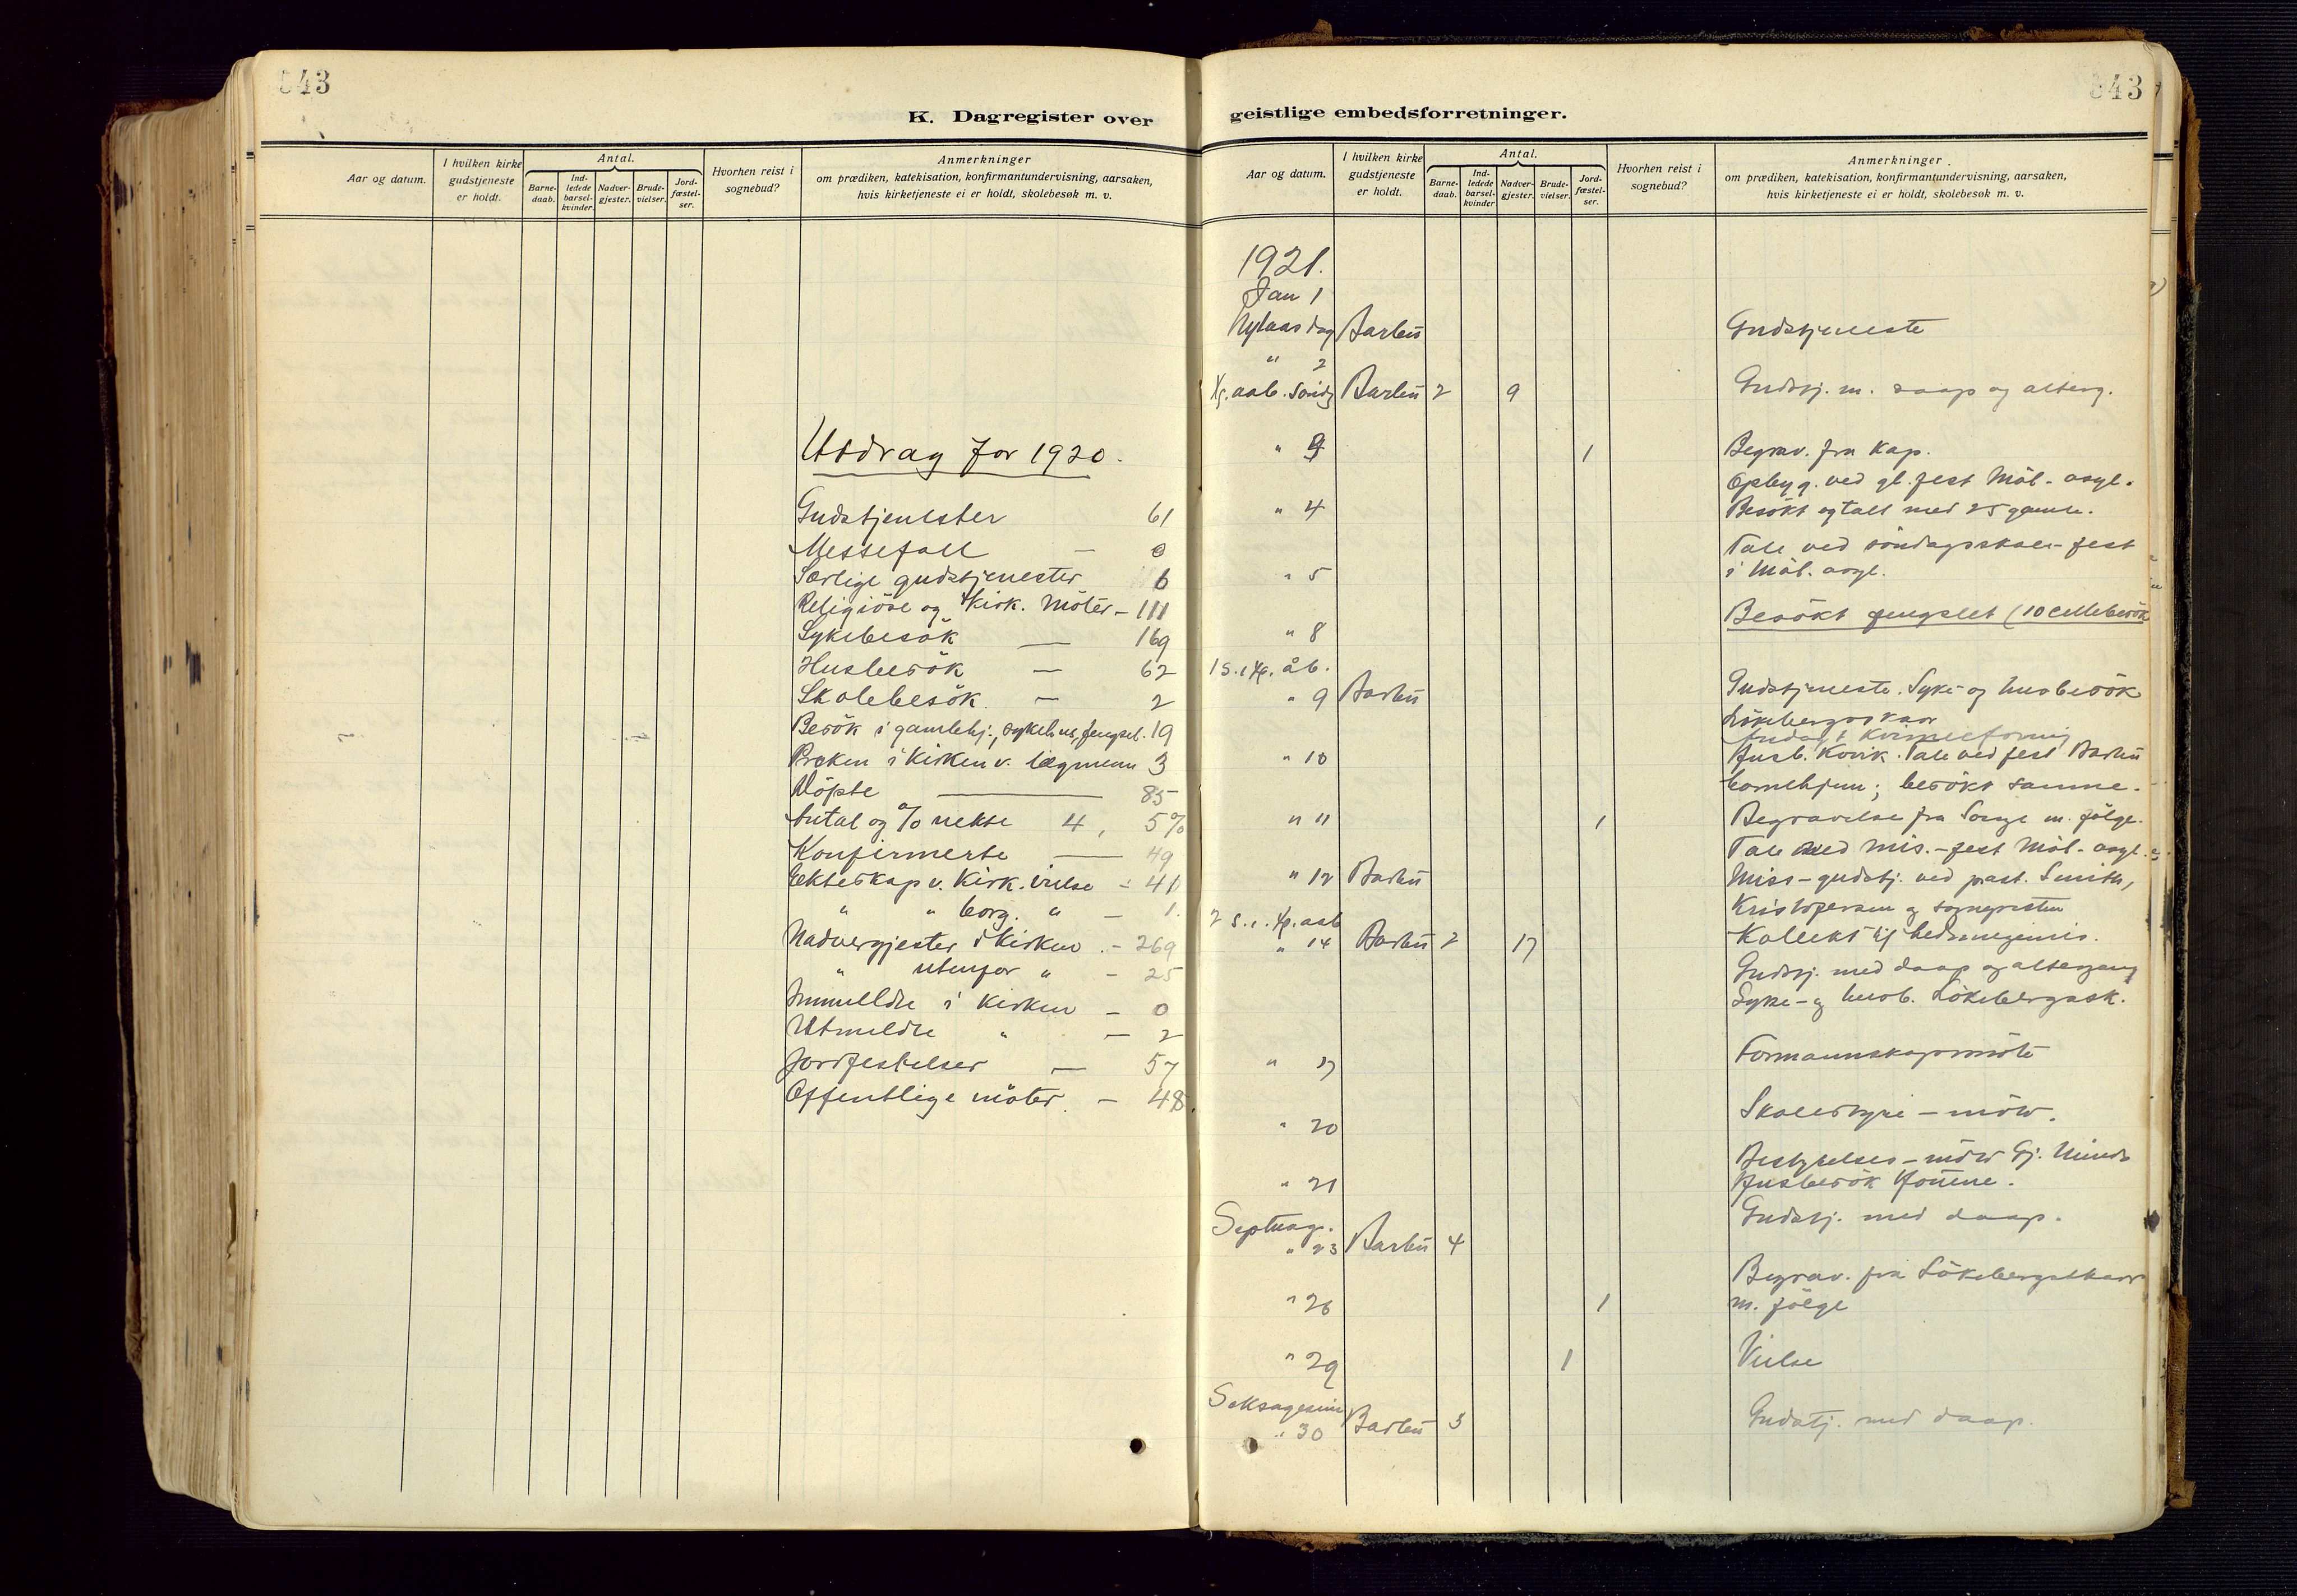 543
K. Dagregister over
Aar og datum.
I hvilken kirke gudstjeneste er holdt.
Antal.
Barne-daab.
Ind-ledede barsel-kvinder.
Nadver-gjester.
Brude-vielser.
Jord-fæstel-ser.
Hvorhen reist i sognebud?
Anmerkninger
om prædiken, katekisation, konfirmantundervisning, aarsaken,
hvis kirketjeneste ei er holdt, skolebesøk m. v.
Utdrag for 1920.
Gudstjenester 61
Messefall — 0
Særlige gudstjenester 6
Religiöse og kirk. Möter – 111
Sykebesök — 169
Husbesök — 62
Skolebesök. — 2
Besök i gamlehj., sykehus, fengsel. 19
Preken i kirken v. lægmenn 3
Döpte — 85
Antal og % uekte 4, 5%
Konfirmerte — 49
Ekteskap v. Kirk. vielse – 41
" " borg. " – 1.
Nadvergjester i kirken – 269
" utenfor " – 25
Innmeldte i kirken – 0
Utmeldte " – 2
Jordfestelser — 57
Offentlige möter. – 48.
543
geistlige embedsforretninger.
Aar og datum.
I hvilken kirke gudstjeneste er holdt.
Antal.
Barne-daab.
Ind-ledede barsel-kvinder
Nadver-gjester.
Brude-vielser.
Jord-fæstel-ser.
Hvorhen reist i sognebud?
Anmerkninger.
om prædiken, katekisation, konfirmantundervisning, aarsaken,
hvis kirketjeneste ei er holdt, skolebesøk m. v.
1921.
Jan 1
Nytaarsdag Barbu Gudstjeneste
" 2
aab. Sönd Barbu 2 9 Gudstj. m. daap og alterg.
" 1 Begrav. fra Kap.
Opbyg. ved gl. fest Mál. asyl.
" 4 Besökt og talt med 25 gamle.
Tale ved söndagsskole-fest
" 5 i Mál. asyl.
Besökt fengslet (10 cellebesök
" 8
1 s. e. Hp. åb.
" 9 Barbu Gudstjeneste. Syke- og husbesök
Lökebergsskaar
" 10 Husb. Kovik. Tale ved fest Barbu
barnehjem; besökt samme.
" 11 1 Begravelse fra Songe m. fölge.
Tale ved mis.-fest Mál. asyl.
" 12 Barbu Miss-gudstj. ved past. Smith,
Kristofersen og sogneprsten
2 s. e. Hp. aab Kollekt til hedningemis.
" 14 Barbu 2 17 Gudstj. med daap og altergang
Syke- og husb. Lökebergssk.
" Formannskapsmöte
Skolestyre – möte.
" 20
Bestyrelses – möte
" 21 Husbesök
Septuag. Gudstj. med daap.
" 23 Barbu 4
Begrav. fra Lökebergskaar
" 26 1 m. fölge
" 29 1 Vielse
Seksagesima
" 30 Barbu 3 Gudstj. med daap.